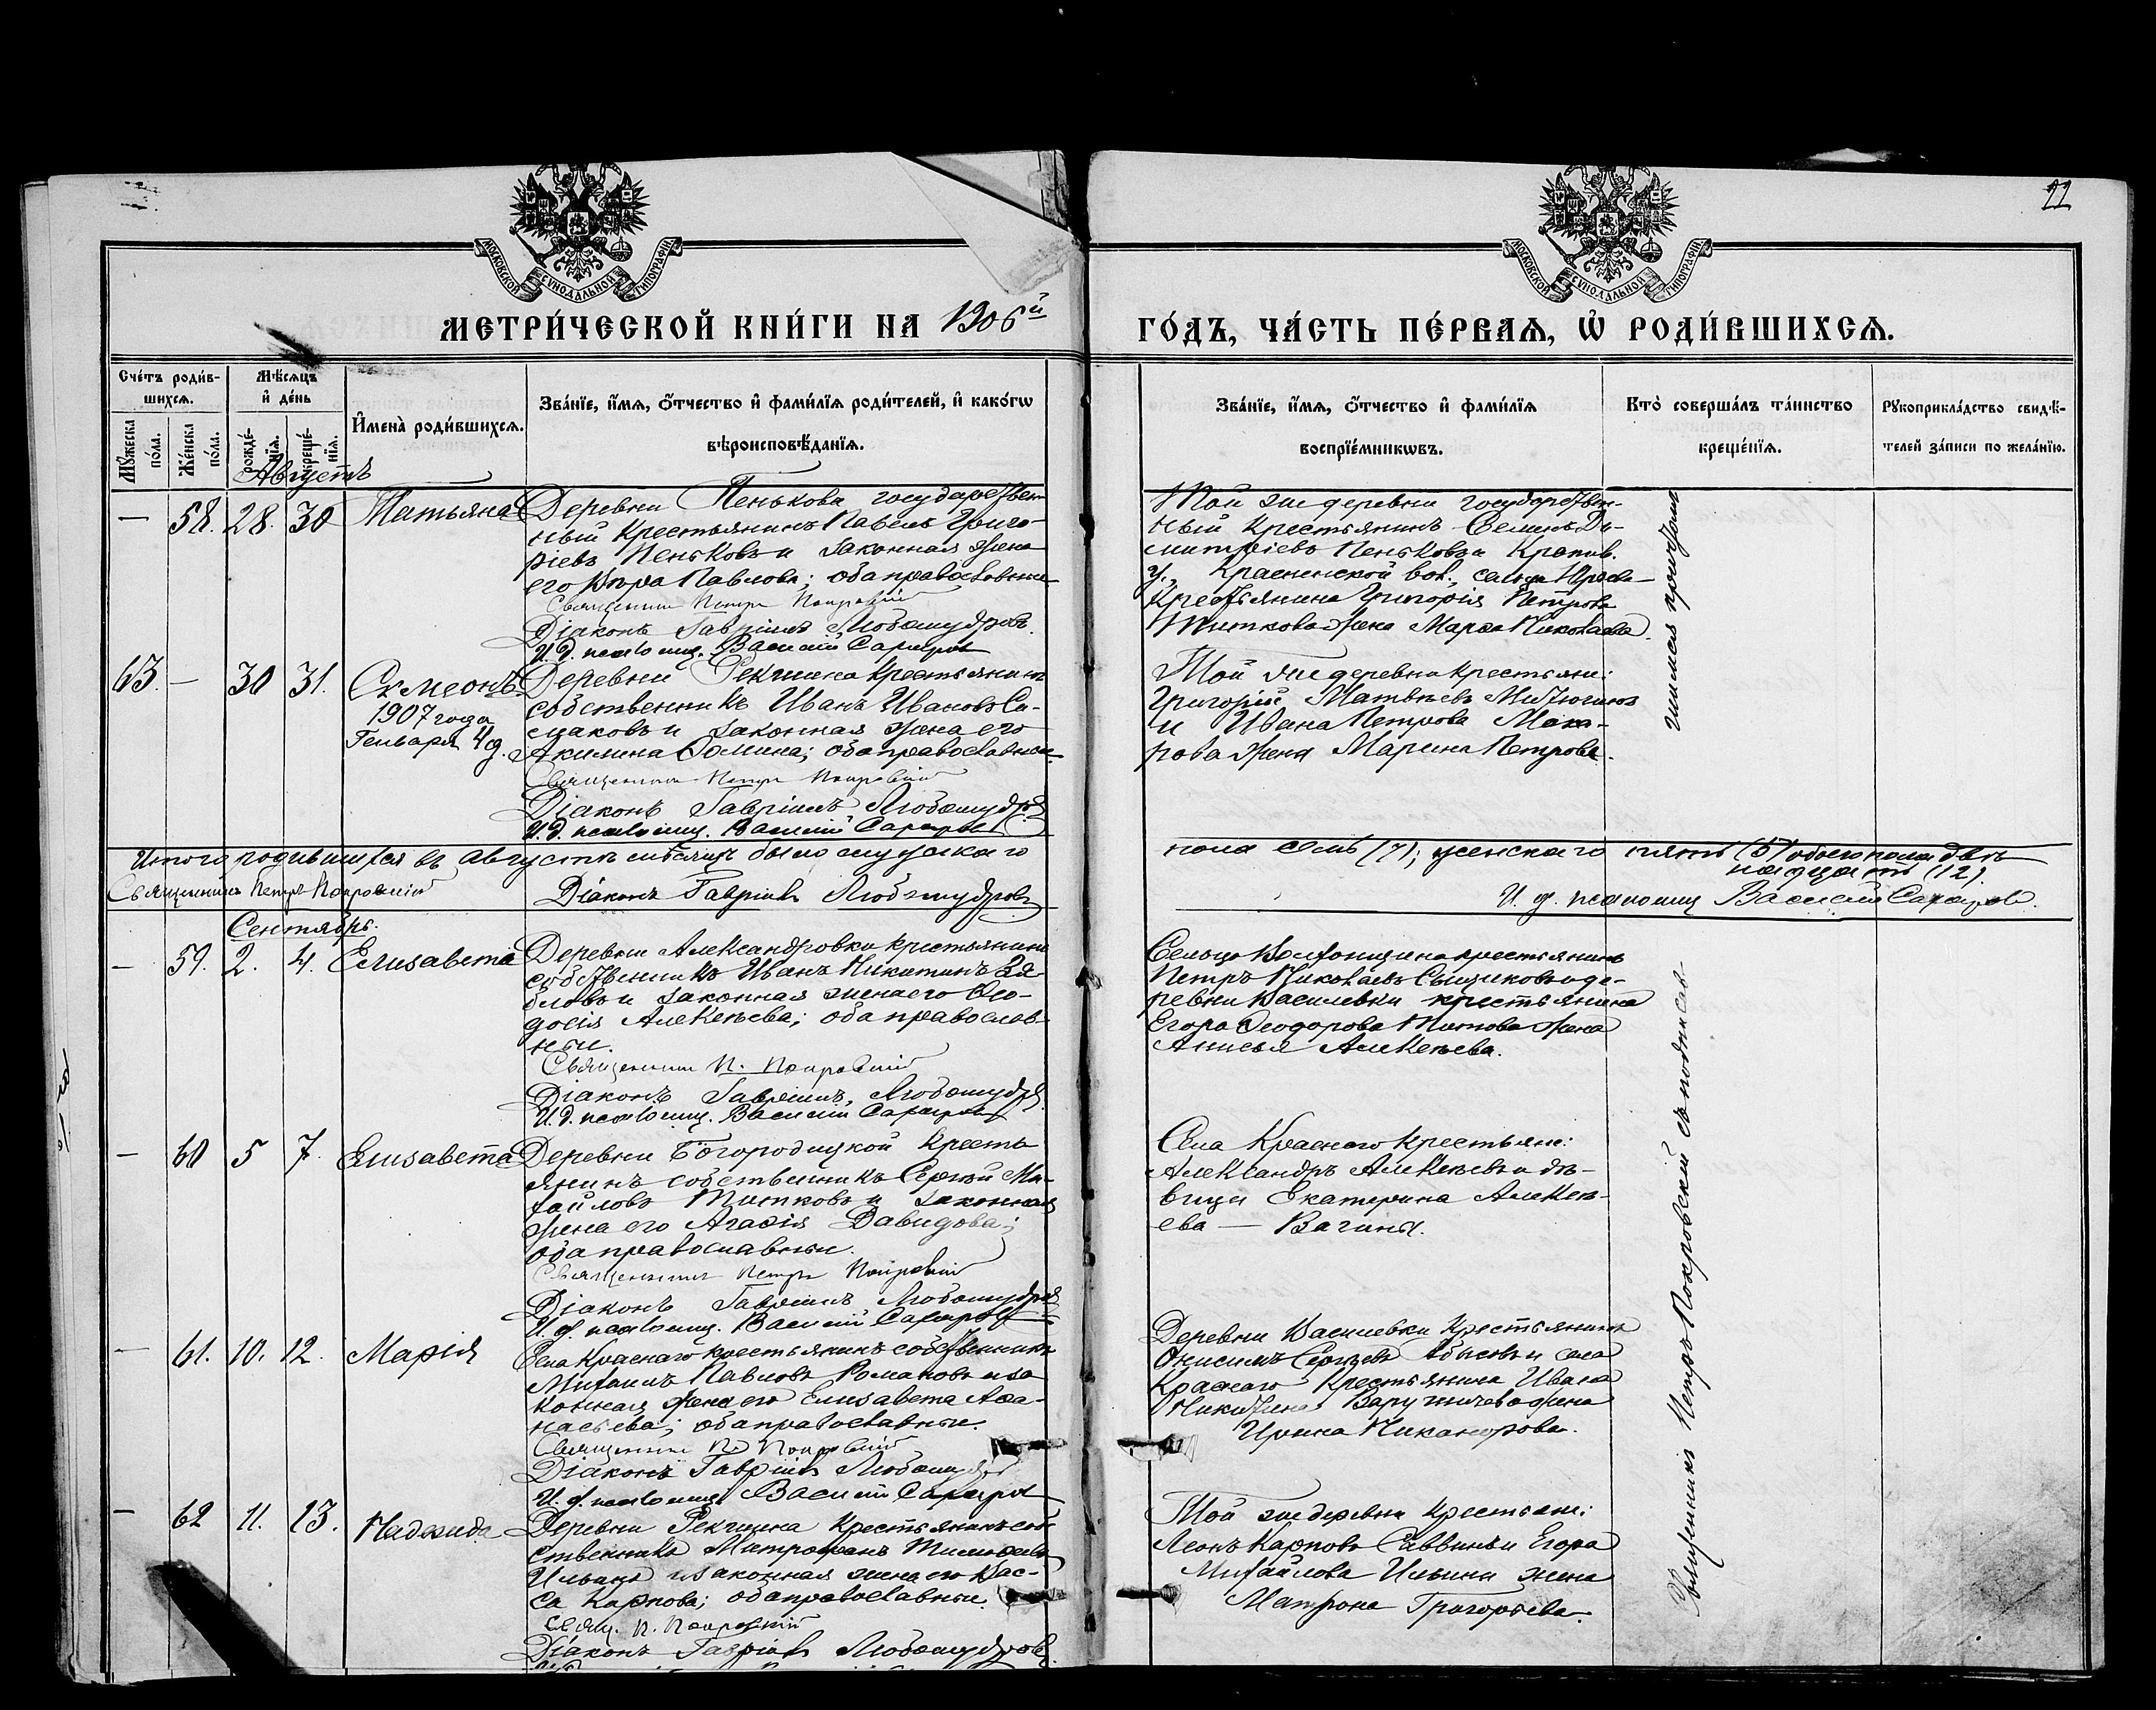 22
МОСКОВСКОЙ СѴНОДАЛЬНОЙ ТИПОГРАФІИ
МОСКОВСКОЙ СѴНОДАЛЬНОЙ ТИПОГРАФІИ
МЕТРИ́ЧЕСКОЙ КНИ́ГИ НА 1906й
ГО́ДЪ, ЧА́СТЬ ПЕ́РВАѦ, Ѡ҆ РОДИ́ВШИХСѦ.
Сче́тъ роди́в-
шихсѧ.
Мѣ́сѧцъ
и҆ де́нь
И҆мена̀ роди́вшихсѧ.
Зва́нїе, и҆́мѧ, ѻ҆́тчество и҆ фами́лїѧ роди́телей, и҆ како́гѡ
вѣроисповѣ́данїѧ.
Мꙋ́жеска по́ла.
Же́нска по́ла.
рожде́нїѧ.
креще́нїѧ.
Зва́нїе, и҆́мѧ, ѻ҆́тчество и҆ фами́лїѧ
воспрїе́мникѡвъ.
Кто̀ соверша́лъ та́инство
креще́нїѧ.
Рꙋкоприкла́дство свидѣ́-
телей за́писи по жела́нїю.
Августъ
— 58. 28. 30 Татьяна
Деревни Пенькова государствен-
ный крестьянинъ Павелъ Григо-
ріевъ Пеньковъ и законная жена
его Вѣра Павлова; оба православные
Священникъ Петръ Покровскій
Діаконъ Гавріилъ Любомудровъ.
И. д. псаломщ. Василій Сахаровъ
Той же деревни государствен-
ный крестьянинъ Семенъ Ди-
митріевъ Пеньковъ и Крапив.
у., Красненской вол., сельца
крестьянина Григорія Петрова
Титкова жена Марѳа Николаева.
63. — 30 31. Сѵмеонъ
1907 года
Генваря 4 д.
Деревни Рекчина крестьянинъ
собственникъ Иванъ Ивановъ Си-
маковъ и законная жена его
Акилина Ѳомина; оба православные
Священникъ Петръ Покровскій
Діаконъ Гавріилъ Любомудровъ
И. д. псаломщ. Василій Сахаровъ
Той же деревни крестьяни:
Григорій Матвѣевъ Митюгинъ
и Ивана Петрова Мака-
рова жена Марина Петрова.
Итого родившихся въ августѣ мѣсяцѣ было мужскаго
пола семь (7); женскаго пять (5) обоего пола двѣ-
надцать (12).
Священникъ Петръ Покровскій Діаконъ Гавріилъ Любомудровъ
И. д. псаломщ Василій Сахаровъ.
Сентябрь.
— 59. 2. 4. Елизавета
Деревни Александровки крестьянинъ
собственникъ Иванъ Никитинъ Зя-
бловъ и законная жена его Ѳео-
досія Алексѣева; оба православ-
ные.
Священникъ П. Покровскій
Діаконъ Гавріилъ Любомудровъ
И. д. псаломщ. Василій Сахаровъ
крестьянинъ
Петръ Николаевъ Сыщиковъ и де-
ревни Василевки крестьянина
Егора Ѳеодорова Титова жена
Анисья Алексѣева.
— 60 5 7. Елизавета
Деревни Богородицкой кресть-
янинъ собственникъ Сергѣй Ми-
хайловъ Титковъ и законная
жена его Агаѳія Давидова;
оба православные.
Священникъ Петръ Покровскій
Діаконъ Гавріилъ Любомудровъ
И. д. псаломщ. Василій Сахаровъ
Села Краснаго крестьяне:
Александръ Алексѣевъ и дѣ-
вица Екатерина Алексѣ-
ева — Вагины.
— 61. 10. 12. Марія
Села Краснаго крестьянинъ собственникъ
Михаилъ Павловъ Романовъ и за-
конная жена его Елизавета Аѳа-
насьева; оба православные.
Священникъ П. Покровскій
Діаконъ Гавріилъ Любомудровъ
И. д. псаломщ. Василій Сахаровъ
Деревни Василевки крестьянинъ
Онисимъ Сергѣевъ и села
Краснаго крестьянина Ивана
Никитина жена
Ирина Никанорова.
— 62 11. 13. Надежда
Деревни Рекчина крестьянинъ соб-
ственникъ Митрофанъ Тимоѳеевъ
Ильинъ и законная жена его Вас-
са Карпова; оба православные.
Свящ. П. Покровскій
Діаконъ Гавріилъ Любомудровъ
Той же деревни крестьяне:
Леонъ Карповъ Саввинъ и Егора
Михайлова Ильина жена
Матрона Григорьева.
Священникъ Петръ Покровскій съ подписав-
шимся причтомъ